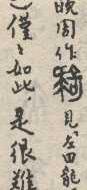 晚周作見左四龍
）僅僅如此，是很難